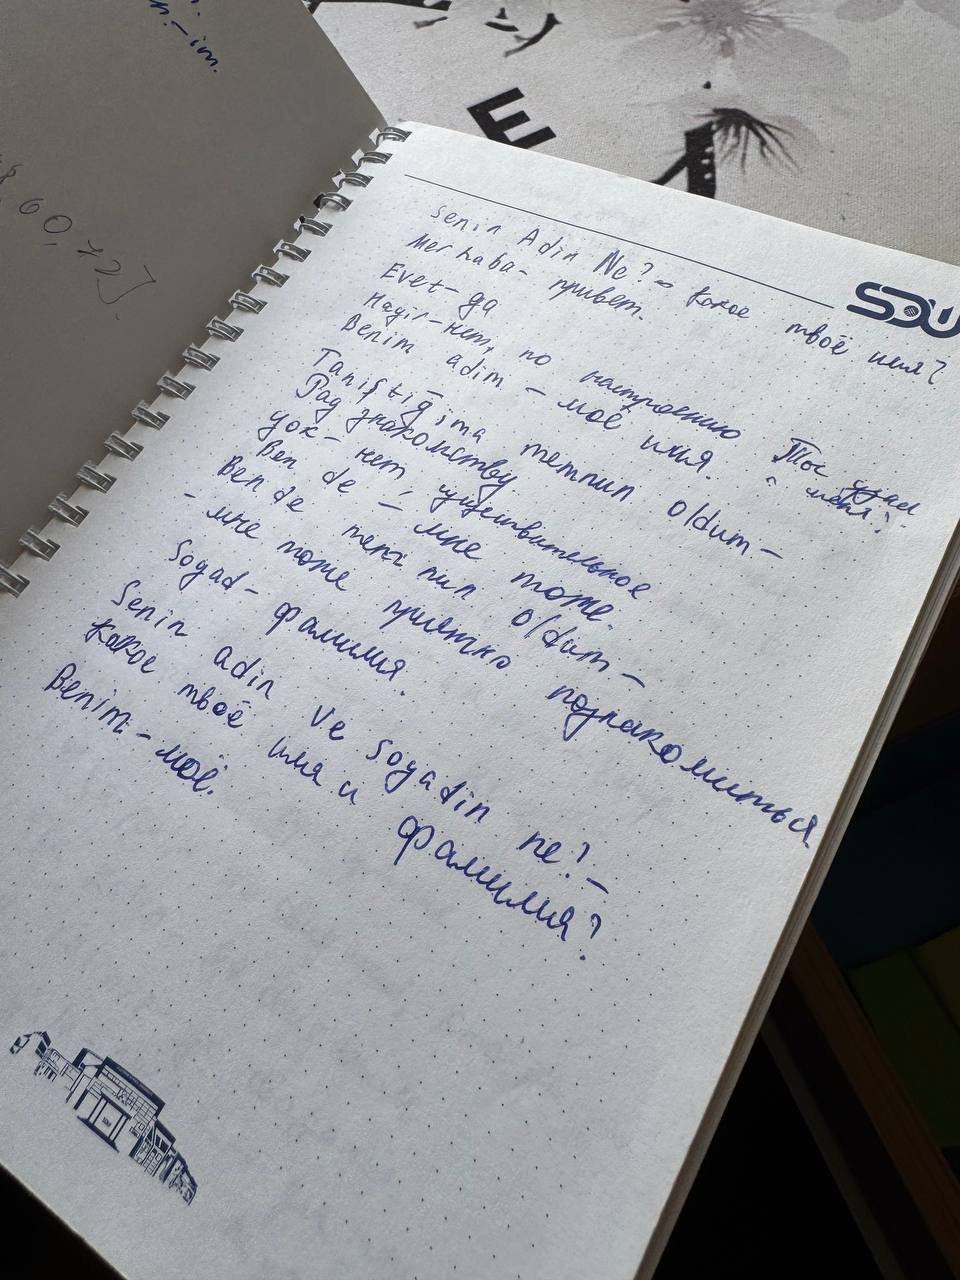 n.-im.
60,72]
E
SDU
Senin Adin Ne? - какое твоё имя?
Merhaba - привет.
Evet - да
Hayir - нет, по настроению Ты
Benim adim - моё имя.
Taniştiğima memnun oldum -
Рад знакомству
yok - нет, существительное
Ben de - мне тоже.
Ben de memnun oldum -
- мне тоже приятно познакомиться
Soyad - фамилия.
Senin adin ve soyadin ne? -
Какое твоё имя и фамилия?
Benim - моё.